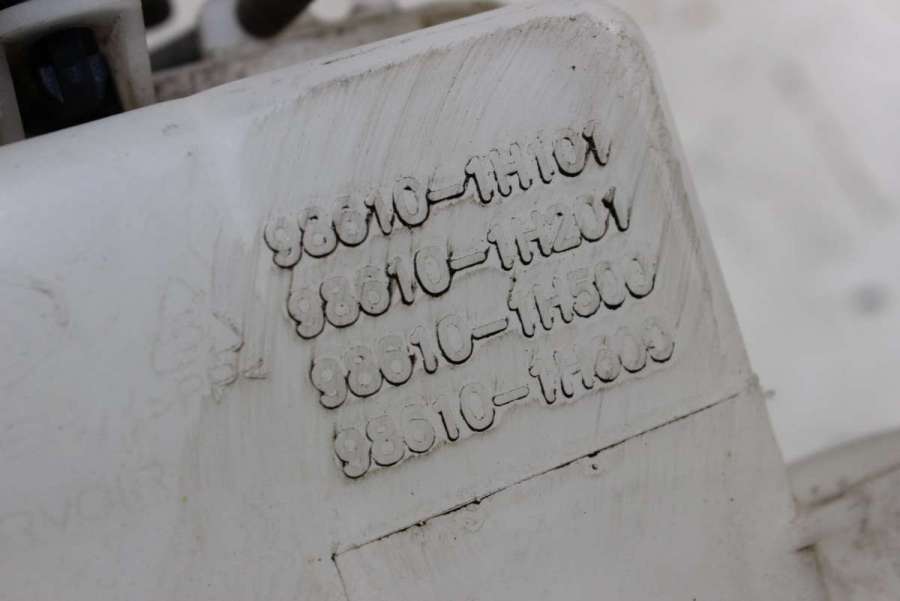 98610-1H101
98610-1H201
98610-1H500
98610-1H600
RVOIR